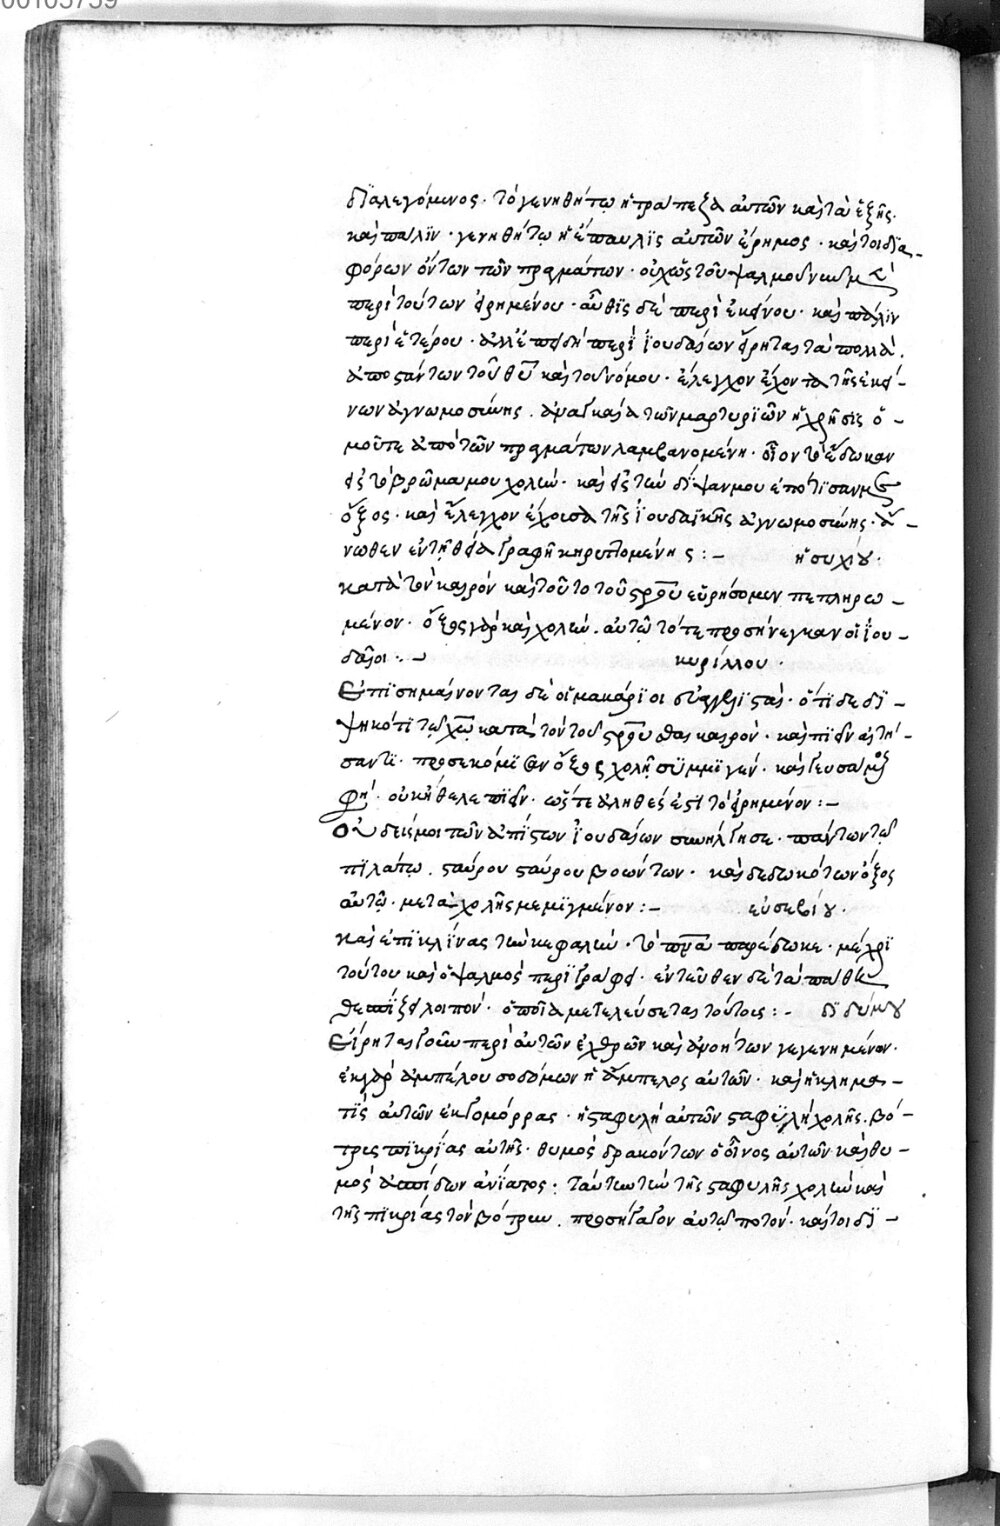 00105759
διαλεγόμενος· τὸ γενηθήτω ἡ τράπεζα αὐτῶν καὶ τὰ ἑξῆς·
καὶ πάλιν· γενηθήτω ἡ ἔπαυλις αὐτῶν ἔρημος· καίτοι δια-
φόρων ὄντων τῶν πραγμάτων· οὐχ ὡς τοῦ ψαλμοῦ νῦν μὲν
περὶ τούτων εἰρημένου· αὖθις δὲ περὶ ἐκείνου· καὶ πάλιν
περὶ ἑτέρου· ἀλλ' ἐπειδὴ περὶ ἰουδαίων εἴρηται τὰ πολλὰ.
ἀποστάντων τοῦ θυ καὶ τοῦ νόμου· ἔλεγχον ἔχοντα τῆς ἐκεί-
νων ἀγνωμοσύνης. ἀναγκαία τῶν μαρτυριῶν ἡ χρῆσις ὁ-
μοῦ τε ἀπὸ τῶν πραγμάτων λαμβανομένη· οἷον τὸ ἔδωκαν
εἰς τὸ βρῶμα μου χολὴν· καὶ εἰς τὴν δίψαν μου ἐπότισαν με
ὄξος· καὶ ἔλεγχον ἔχουσα τῆς ἰουδαϊκῆς ἀγνωμοσύνης· ἄ-
νωθεν ἐν τῇ θεία γραφῆ κηρυττομένης :– ἡσυχίου·
κατὰ τὸν καιρόν καὶ τοῦτο τοῦ στρου εὑρήσομεν πεπληρω-
μένον· ὄξος γὰρ καὶ χολὴν. αὐτῶ τότε προσήνεγκαν οἱ ἰου-
δαῖοι·– κυρίλλου·
Ἐπισημαίνονται δὲ οἱ μακάριοι εὐαγγελισταὶ· ὅτι δεδι-
ψηκότι τῶ χω κατὰ τὸν τοῦ στρου καιρὸν· καὶ πιεῖν αἰτή-
σαντι· προσεκόμιζον ὄξος χολῆ συμμιγὲν· καὶ γευσάμενος
φησὶ· οὐκ ἤθελε πιεῖν· ὥστε ἀληθές ἐστὶ τὸ εἰρημένον :–
Οὐδεὶς μοι τῶν ἀπίστων ἰουδαίων συνήλγησε· πάντων τῶ
πιλάτω. σταύρου σταύρου βοώντων· καὶ δεδωκότων ὄξος
αὐτῶ· μετὰ χολῆς μεμιγμένον :– εὐσεβίου·
καὶ ἐπικλίνας τὴν κεφαλὴν· τὸ πνα παρέδωκε· μέχρι
τούτου καὶ ὁ ψαλμὸς περιγράφει· ἐντεῦθεν δὲ τὰ πάθη
λοιπόν· ὁποῖα μετελεύσεται τούτοις :– διδύμου
Εἴρηται γοῦν περὶ αὐτῶν ἐχθρῶν καὶ ἀνοήτων γεγενημένων·
ἐκ γὰρ ἀμπέλου σοδόμων ἡ ἄμπελος αὐτῶν· καὶ ἡ κλημα-
τὶς αὐτῶν ἐκ γομόρρας· ἡ σταφυλὴ αὐτῶν σταφυλὴ χολῆς. βό-
τρυς πικρίας αὐτῆς· θυμὸς δρακόντων ὁ οἶνος αὐτῶν καὶ θυ-
μὸς ἀσπίδων ἀνίατος· ταύτην τὴν τῆς σταφυλῆς χολὴν καὶ
τῆς πικρίας τὸν βότρυν. προσήγαγον αὐτῶ ποτόν· καίτοι δι-